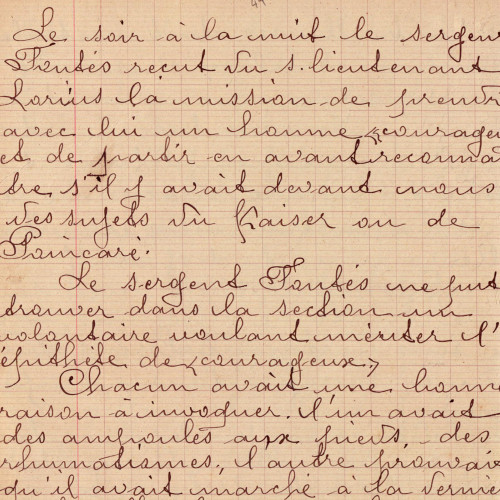 Le soir à la nuit le sergen
Pontés reçut du s. lieutenant
Lorius la mission de prendr
avec lui un homme «courageu
et de partir en avant reconnaî
tre s'il y avait devant nous
des sujets du Kaiser ou de
Poincaré.
Le sergent Pontés ne put
trouver dans la section un
volontaire voulant mériter l'
épithète de «courageux»
Chacun avait une bonne
raison à invoquer. l'un avait
des ampoules aux pieds, des
rhumatismes, l'autre prouvai
qu'il avait marché à la derniè